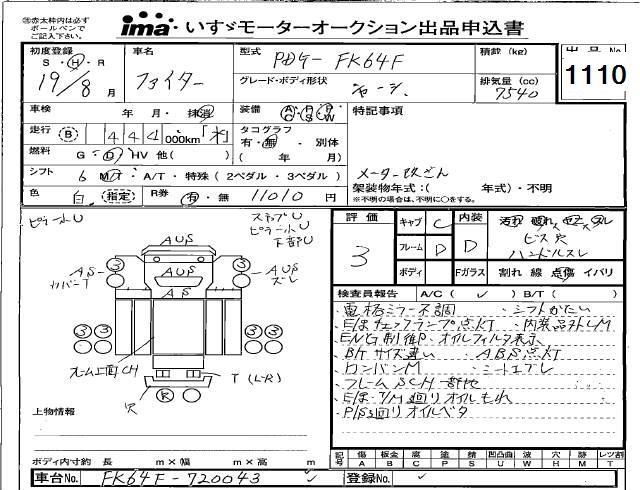 ※赤太枠内は必ず
ボールペンで
ご記入下さい。
ima いすゞモーターオークション出品申込書
出品No.
1110
初度登録 S・H・R 19/8月
車名 ファイター
型式 PDG-FK64F
グレード・ボディ形状
積載(kg)
排気量(cc) 7540
車検 年 月・抹消
装備 AC PS PW
特記事項
走行 B 444,000km
タコグラフ 有・無・別体
燃料 G・D・HV 他( )
( 年 月)
シフト 6 MT・A/T・特殊(2ペダル・3ペダル)
メーター改ざん
架装物年式:( 年式)・不明
※不明の場合は、不明に○をする。
色 白 (指定) R券 有・無 11010円
ピラー小U
ステップU
ピラー小U
下部U
AUS
AS
カバーT
AUS
ズレ
AS
フレーム上面CH
T (L-R)
穴
R
評価 3
キャブ C 内装 D
フレーム D
ボディ Fガラス 割れ 線 点傷 イバリ
ビス穴
ハンドルスレ
検査員報告 A/C( ✓ ) B/T( )
・電格ミラー不調 ・シフトかたい
・E/Gチェックランプ点灯 ・内装品外しM
・ENG制御P・オイルフィルタ表示
・B/Tサイズ違い ・ABS点灯
・ロンバンM ・シートエブレ
・フレームSCH一部地
・E/G・T/M廻りオイルもれ
・P/S廻りオイルベタ
上物情報
ボディ内寸約 長 m×幅 m×高 m
記号 傷A 板金B 腐C 塗P 錆S 凹凸曲U 波W 穴H 跡M レツ割T
車台No. FK64F-720043
登録No.